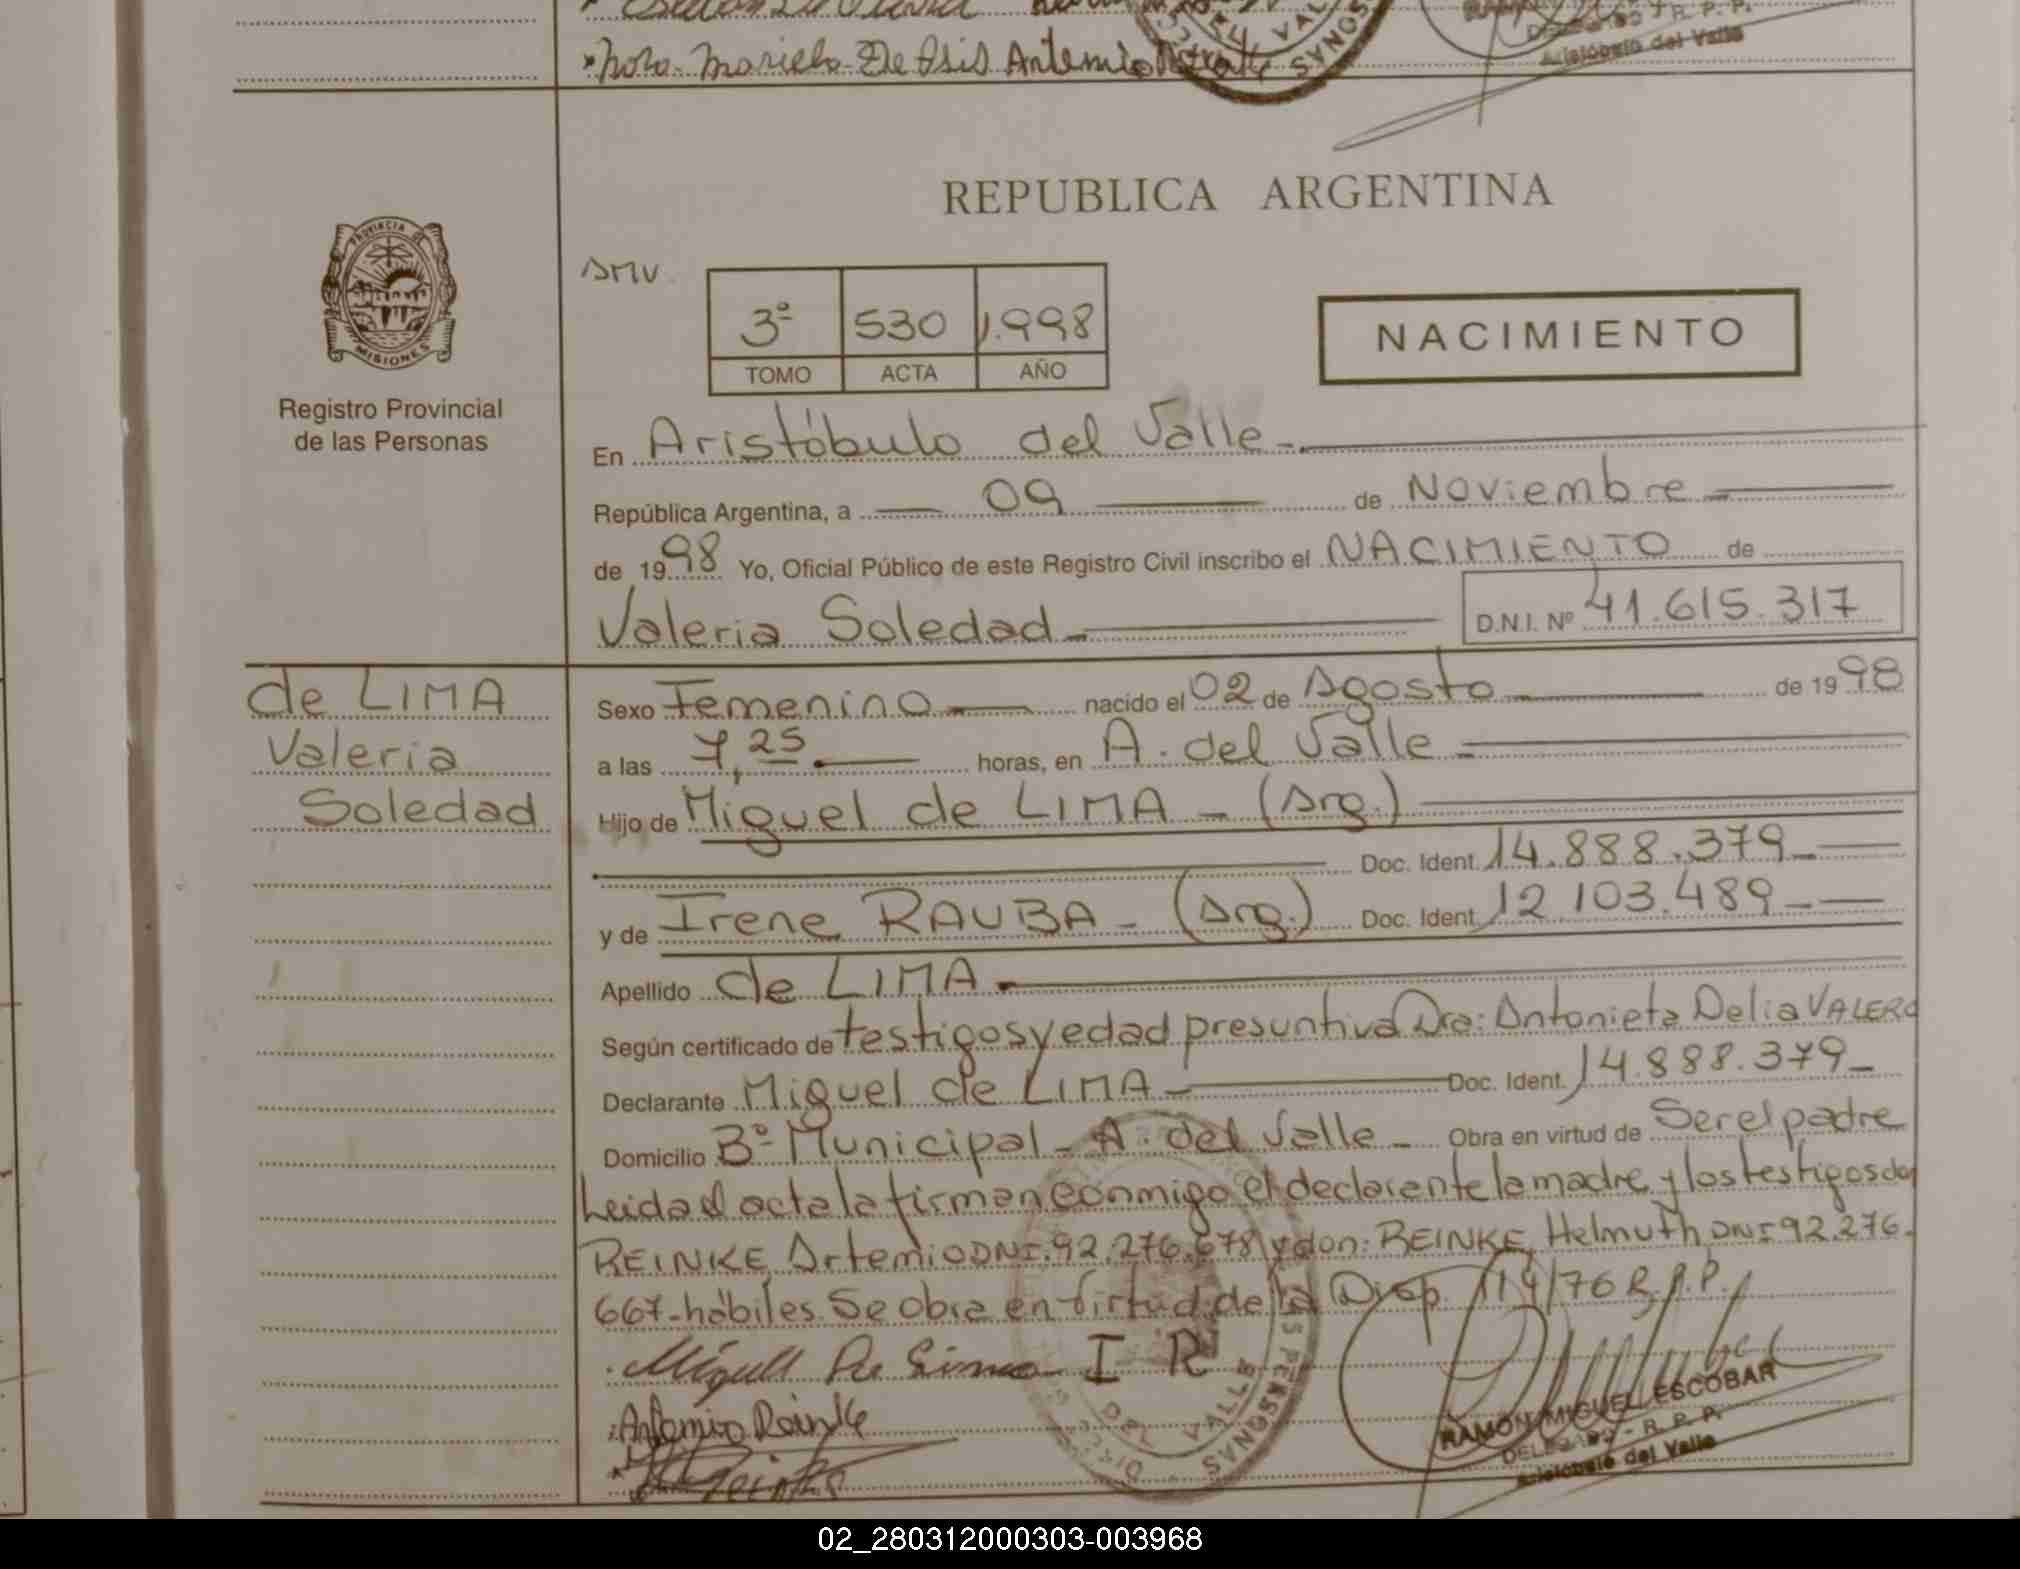 Aristóbulo del Valle
REPUBLICA ARGENTINA
PROVINCIA DE
MISIONES
Registro Provincial
de las Personas
SMV
3º 530 1.998
TOMO ACTA AÑO
NACIMIENTO
En Aristóbulo del Valle -
República Argentina, a 09 de Noviembre
de 1998 Yo, Oficial Público de este Registro Civil inscribo el NACIMIENTO de
Valeria Soledad D.N.I. Nº 41.615.317
de LIMA
Valeria
Soledad
Sexo Femenino nacido el 02 de Agosto de 1998
a las 7,25 horas, en A. del Valle
Hijo de Miguel de LIMA - (Arg.)
Doc. Ident. 14.888.379
y de Irene RAUBA - (Arg.) Doc. Ident. 12 103.489
Apellido de LIMA
Según certificado de testigos y edad presuntiva Dra: Antonieta Delia VALERO
Declarante Miguel de LIMA Doc. Ident. 14.888.379
Domicilio Bº Municipal - A. del Valle - Obra en virtud de Ser el padre
Leida el acta la firman conmigo el declarante la madre y los testigos don
REINKE Artemio DNI. 92.276.678 y don: REINKE, Helmuth DNI 92.276.
667-hábiles. Se obra en virtud de la Disp. 114/76 R.P.P.
I R
Artemio Reinke
DEL VALLE
RAMON MIGUEL ESCOBAR
DELEGADO - R. P. P.
Aristóbulo del Valle
02_280312000303-003968